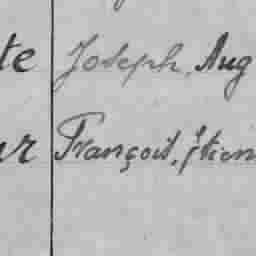 te Joseph, Aug
ur François, Etien